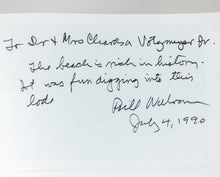 To Dr & Mrs Charles A Votzmeyer Jr.
The beach is rich in history.
It was fun digging into this
lode
Bill
July 4, 1990